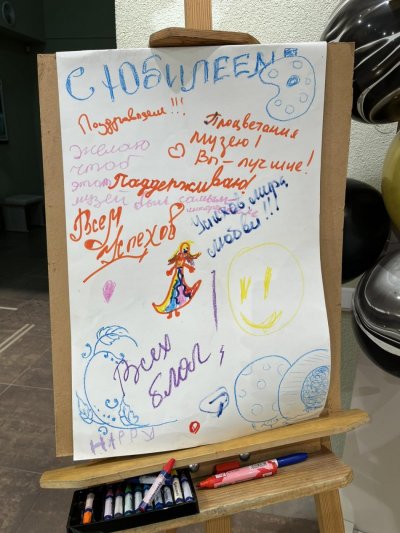 С ЮБИЛЕЕМ
Поздравляем!!!
Процветания
музею!
Вы-лучшие!
Желаю
чтоб
этот
музей был самым
Поддерживаю!
Успехов мира
любви!!!
Всем
успехов
Всех
благ,
HAPPY